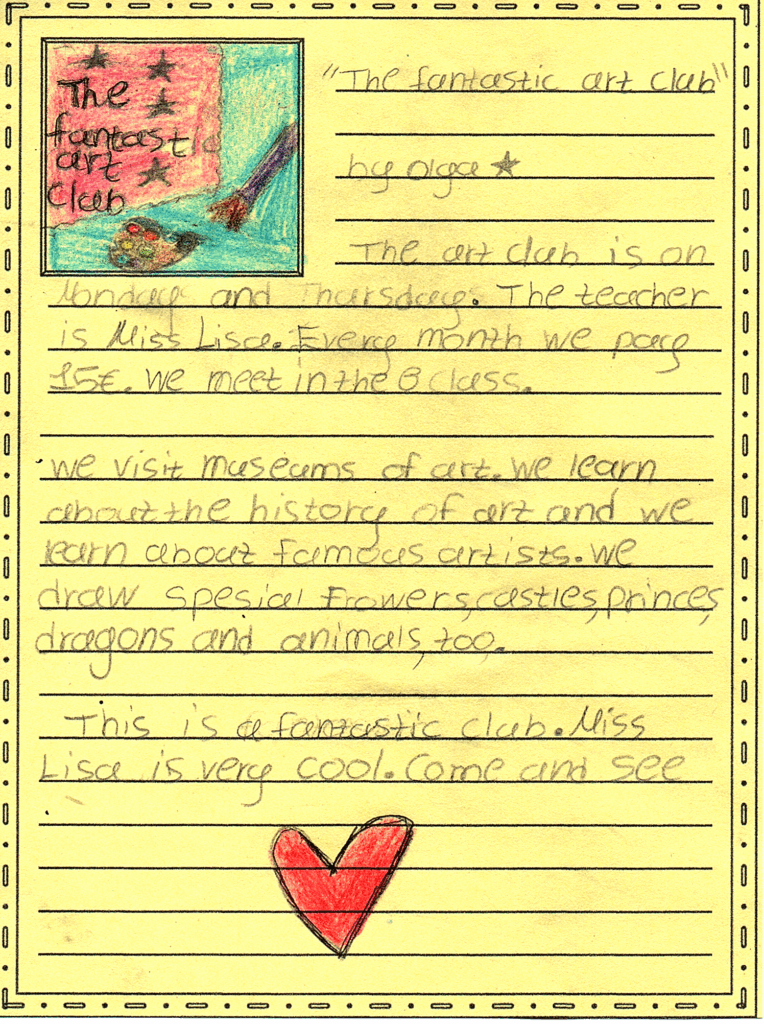 The
fantastic
art
Club
"The fantastic art Club"
by olga ★
The art club is on
Monday and Thursday. The teacher
is Miss Lisa. Every month we pay
15€. We meet in the B class.
we visit museums of art. We learn
about the history of art and we
learn about famous artists. We
draw spesial frowers, castles, princes,
dragons and animals, too.
This is a fantastic club. Miss
Lisa is very cool. Come and see